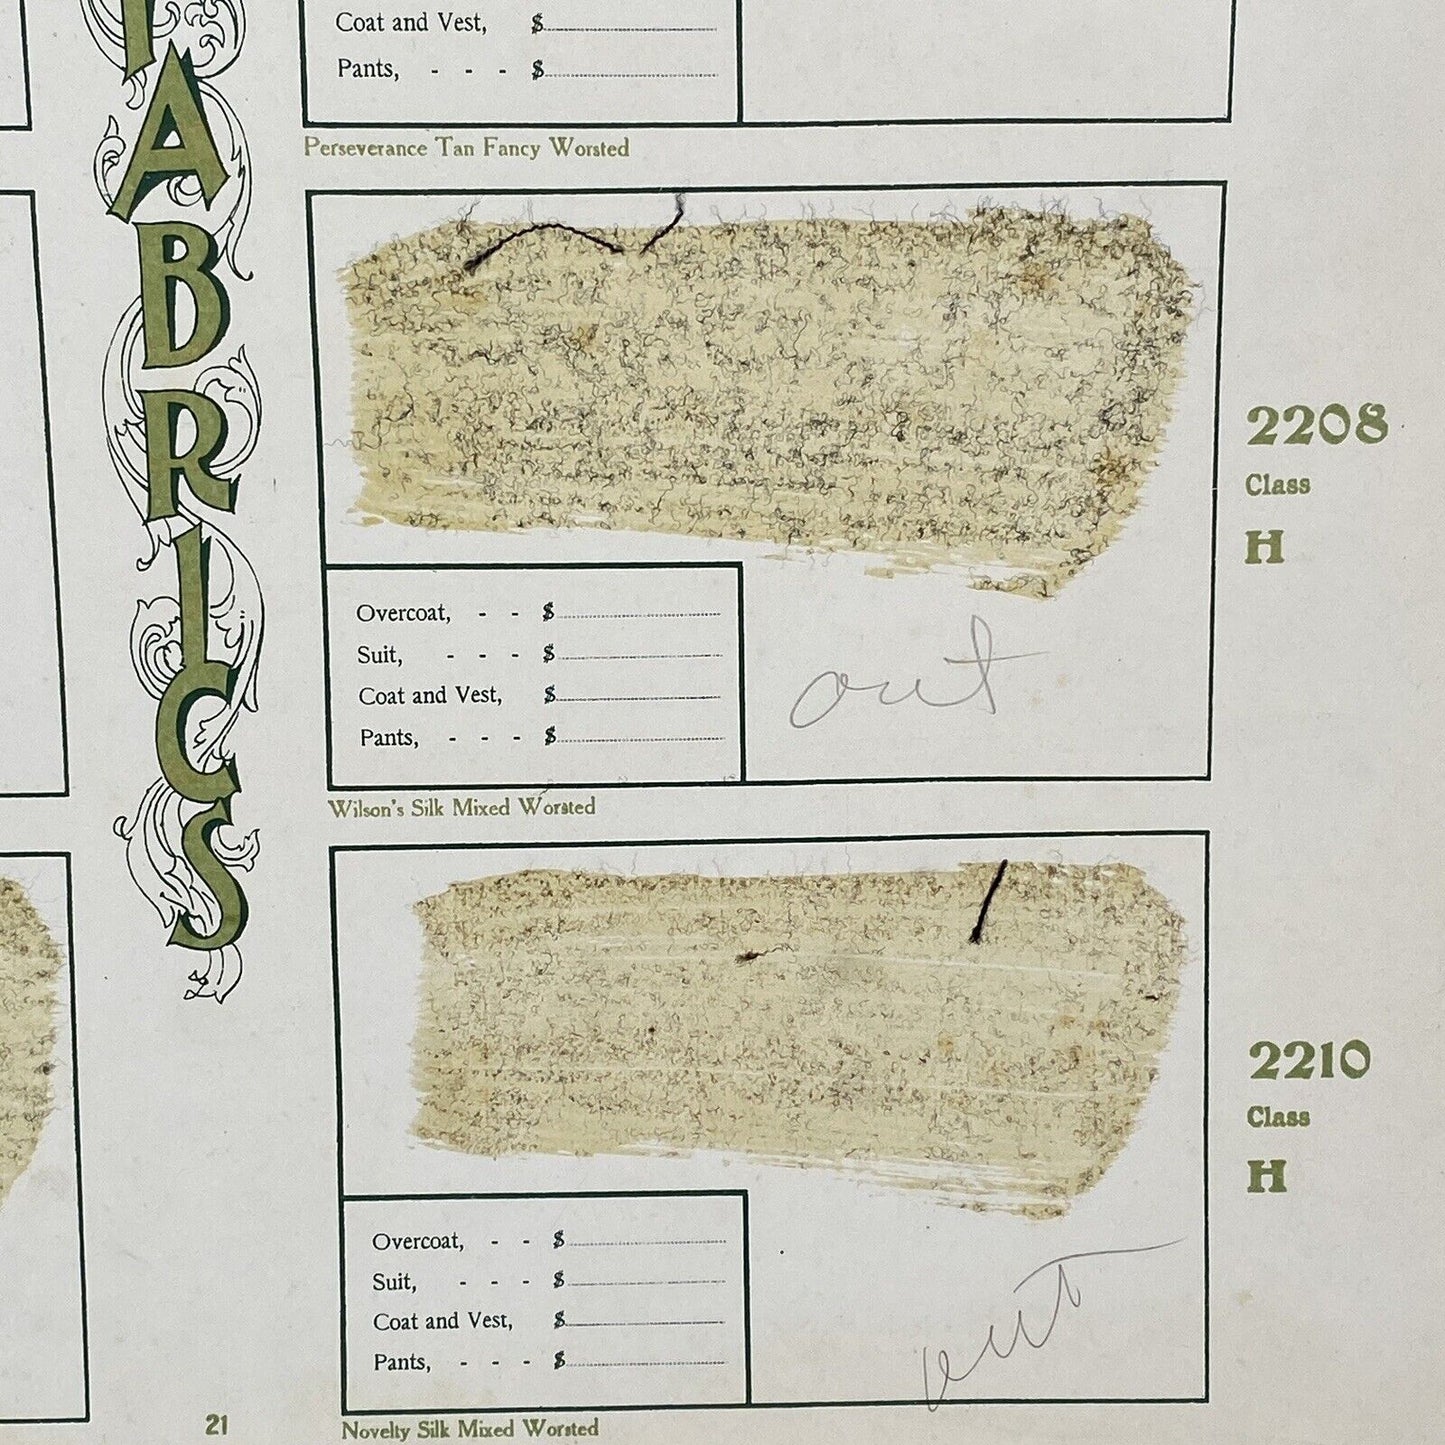 Coat and Vest, $
Pants, - - - $
Perseverance Tan Fancy Worsted
FABRICS
2208
Class
H
Overcoat, - - $
Suit, - - - $
Coat and Vest, $
Pants, - - - $
out
Wilson's Silk Mixed Worsted
2210
Class
H
Overcoat, - - $
Suit, - - - $
Coat and Vest, $
Pants, - - - $
out
21
Novelty Silk Mixed Worsted